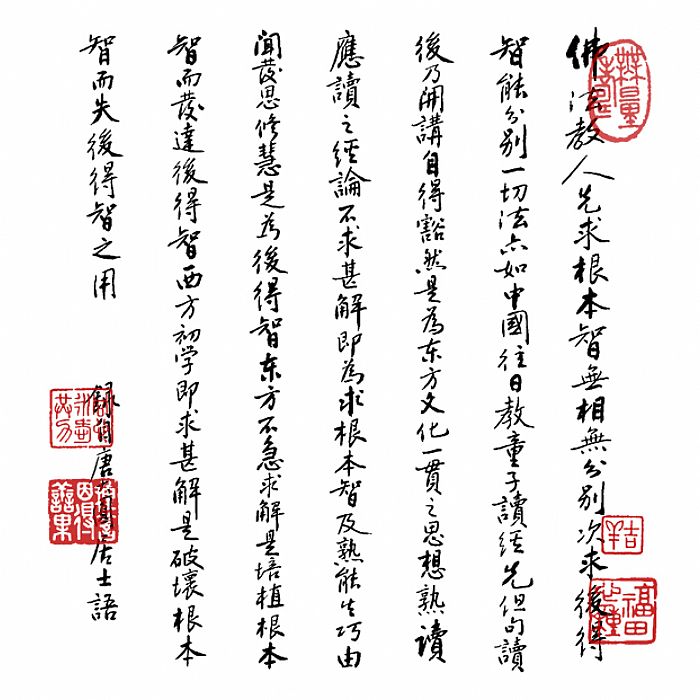 佛法教人先求根本智無相無分別次求後得
智能分別一切法亦如中國往日教童子讀經先但句讀
後乃開講自得豁然是為东方文化一貫之思想熟讀
應讀之經論不求甚解即為求根本智及熟能生巧由
聞發思修慧是為後得智东方不急求解是培植根本
智而發達後得智西方初学即求甚解是破壞根本
智而失後得智之用
錄自唐大圓居士語
無量壽
吉羊
福田心種